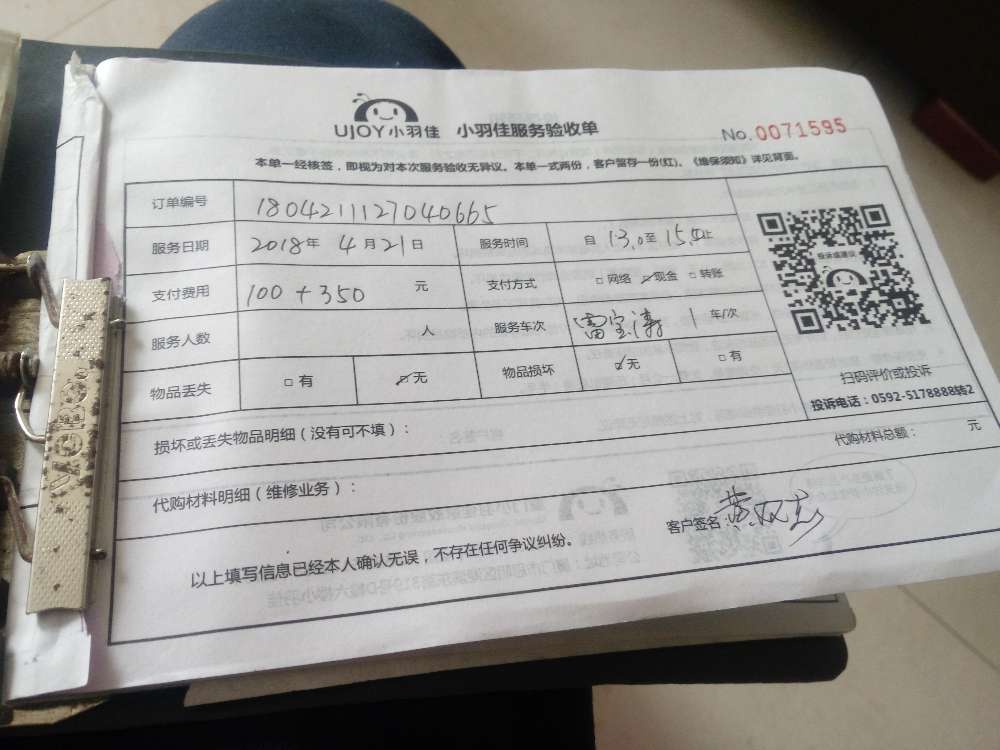 UJOY小羽佳 小羽佳服务验收单 No.0071595
本单一经核签，即视为对本次服务验收无异议。本单一式两份，客户留存一份(红)、《维保须知》详见背面。
订单编号 1804211127040665
服务日期 2018年 4月21日 服务时间 自 13.0至 15.0止
支付费用 100+350 元 支付方式 □网络 ☑现金 □转账
服务人数 人 服务车次 雷宝涛 1 车/次
物品丢失 □有 ☑无 物品损坏 ☑无 □有
投诉或建议
扫码评价或投诉
投诉电话：0592-5178888转2
损坏或丢失物品明细（没有可不填）：
代购材料总额： 元
代购材料明细（维修业务）：
客户签名：黄双
以上填写信息已经本人确认无误，不存在任何争议纠纷。
WOBO